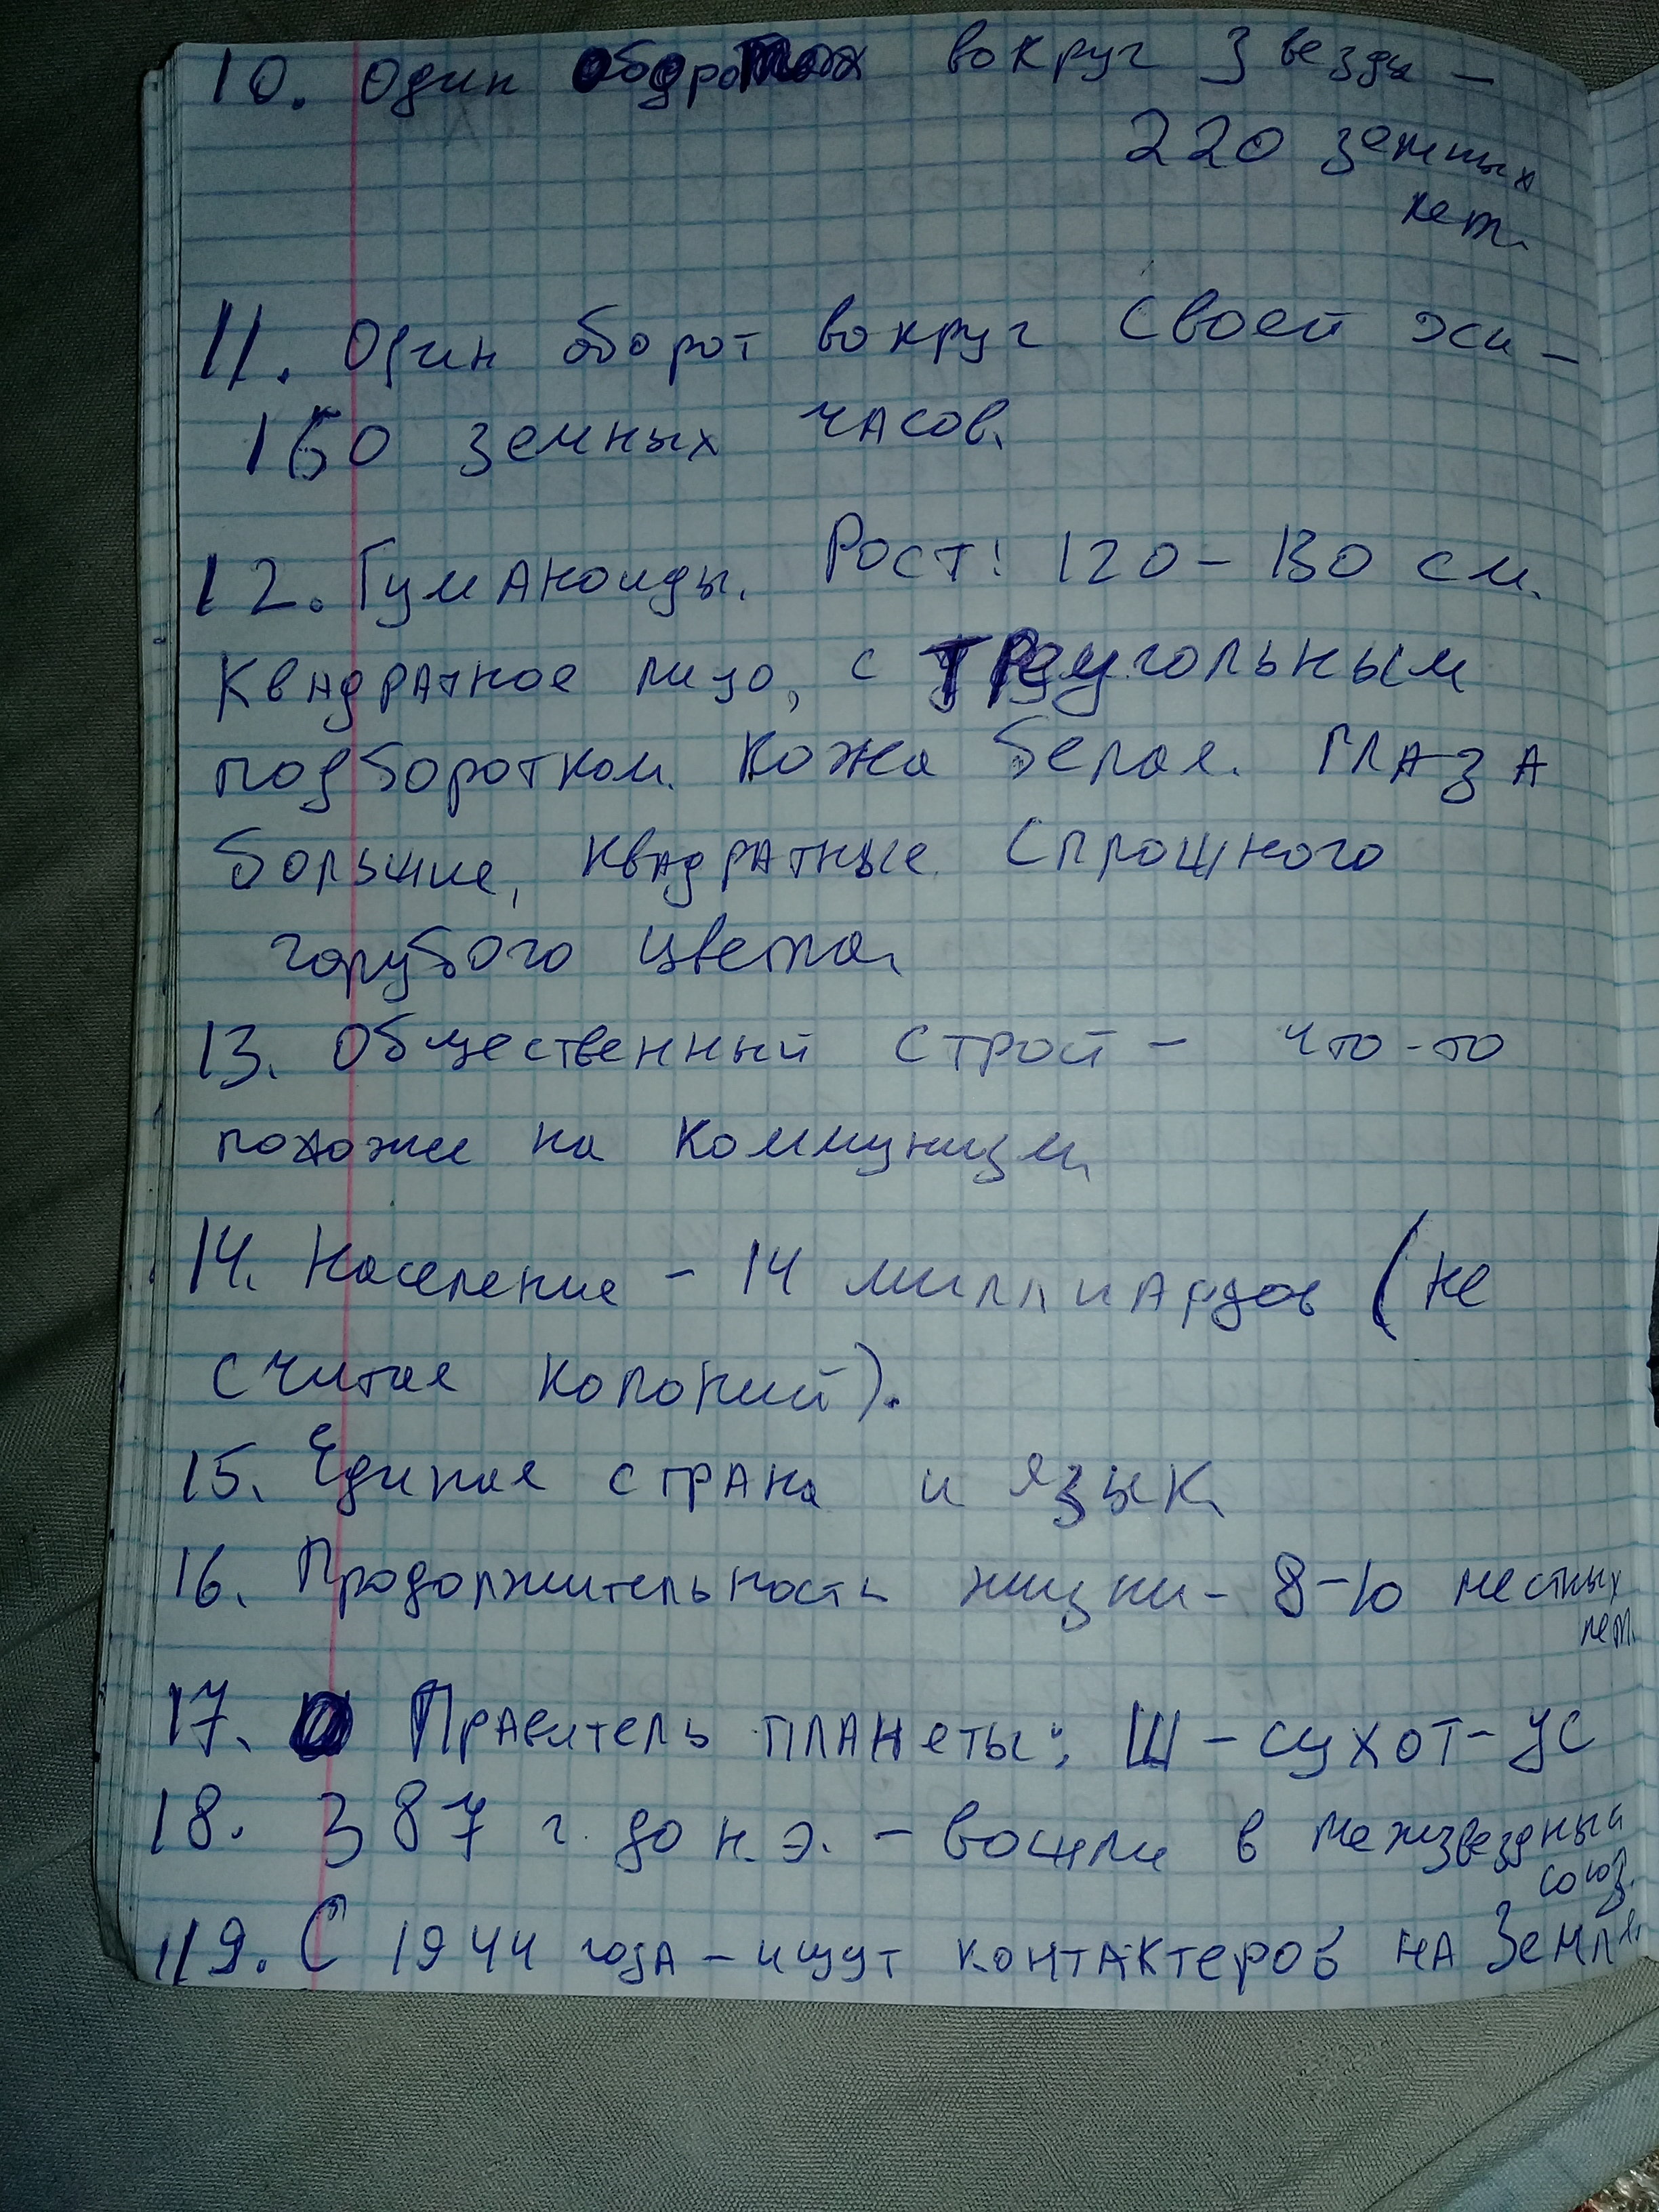 10. Один оборот вокруг Звезды –
220 земных
лет.
11. Один оборот вокруг своей оси –
150 земных часов.
12. Гуманоиды. Рост: 120 – 130 см.
Квадратное лицо, с треугольным
подборотком. Кожа белая. Глаза
большие, квадратные. Сплошного
голубого цвета.
13. Общественный строй – что-то
похожее на коммунизм.
14. Население – 14 миллиардов (не
считая колоний).
15. Единая страна и язык.
16. Продолжительность жизни – 8-10 местных
лет.
17. Правитель планеты: Ш-сухот-ус
18. 387 г. до н.э. – вошли в межзвездный
союз.
19. С 1944 года – ищут контактеров на Земле.